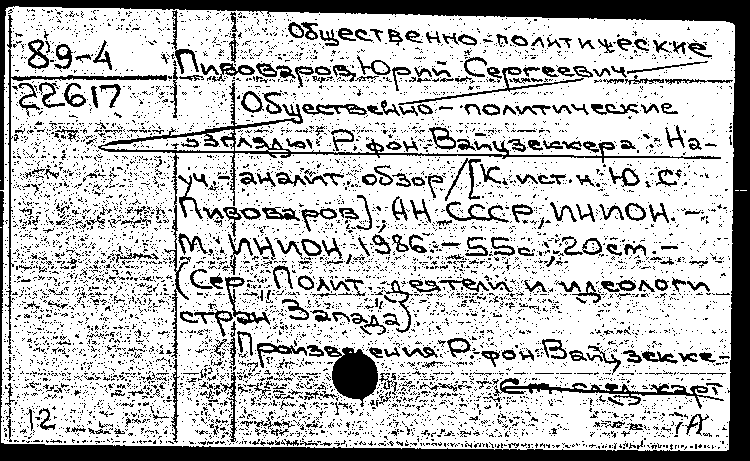 Общественно-политические
89-4
Пивоваров, Юрий Сергеевич
22617
Общественно-политические
взгляды Р. фон Вайцзеккера: На-
уч.-аналит. обзор / [К. ист. н. Ю. С.
Пивоваров]; АН СССР, ИНИОН. -
М.: ИНИОН, 1986. - 55с.; 20см. -
(Сер. "Полит. деятели и идеологи
стран Запада")
Произведения Р. фон Вайцзекке-
См. след. карт
12